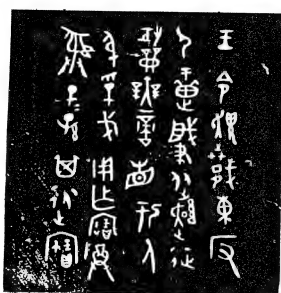 王令趞𢦏東反
尸疐肇從趞征
攻無啻省于人
身孚戈用乍寶尊
彝子孫其永寶